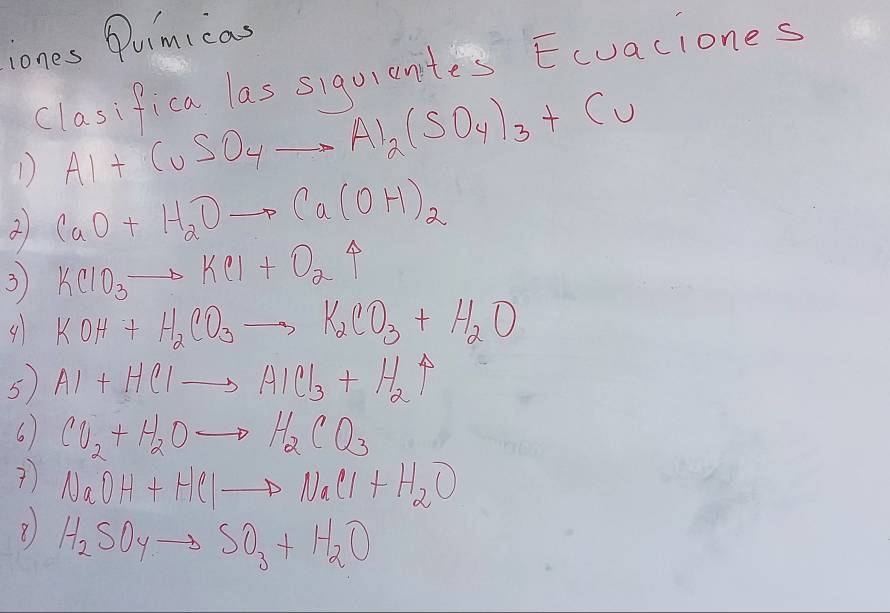 iones Químicas
Clasifica las siguientes Ecuaciones
1) Al + CuSO4 → Al2(SO4)3 + Cu
2) CaO + H2O → Ca(OH)2
3) KClO3 → KCl + O2 ↑
4) KOH + H2CO3 → K2CO3 + H2O
5) Al + HCl → AlCl3 + H2 ↑
6) CO2 + H2O → H2CO3
7) NaOH + HCl → NaCl + H2O
8) H2SO4 → SO3 + H2O